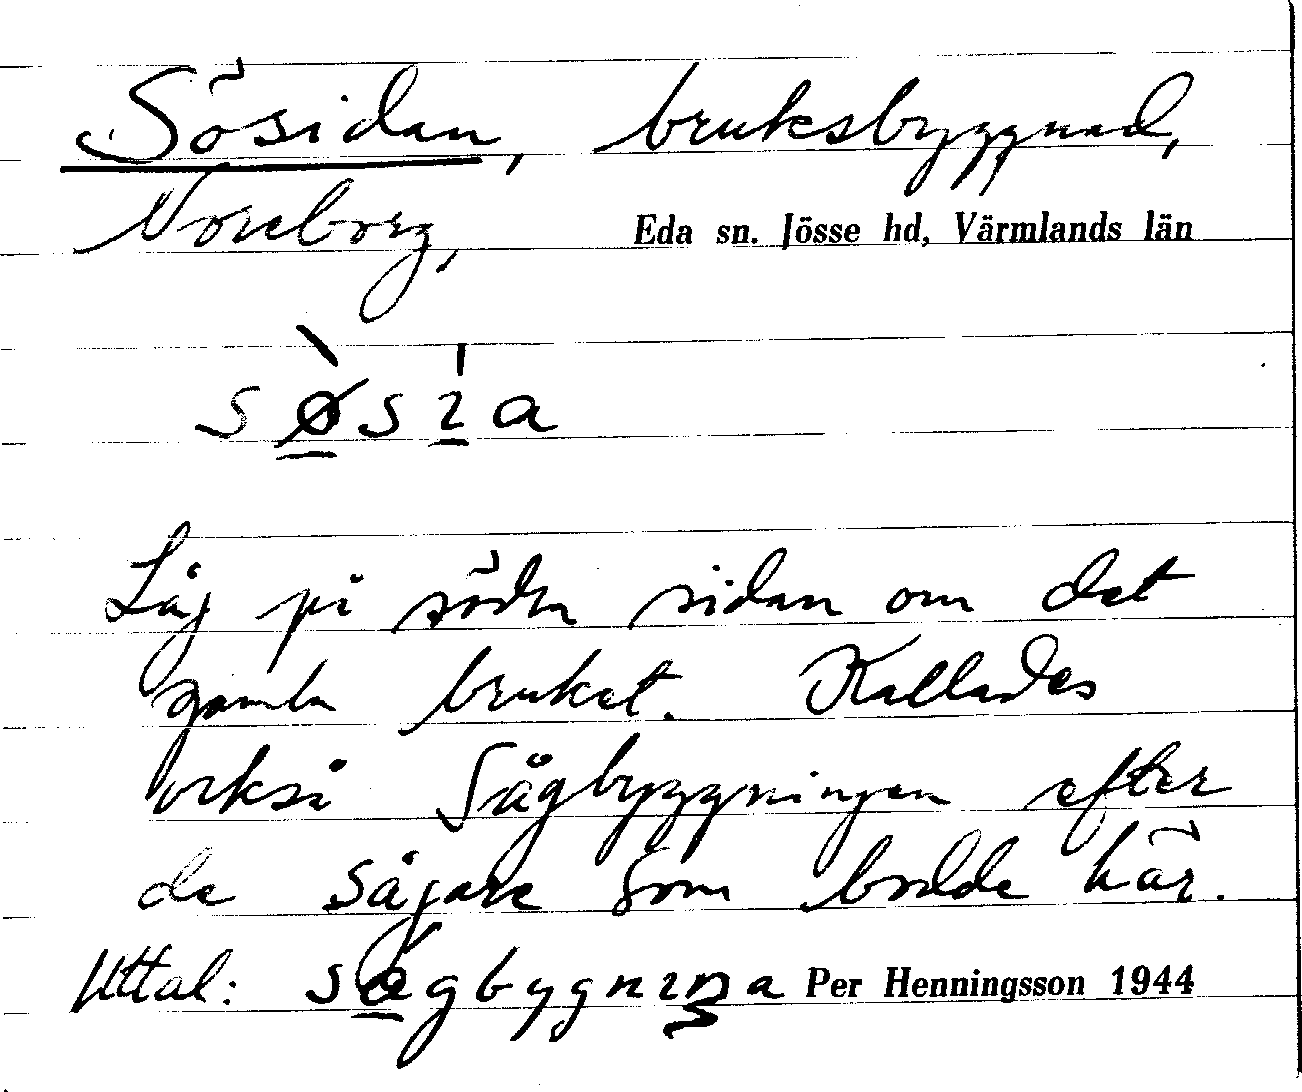 Sösidan, bruksbyggnad,
Noreborg, Eda sn. Jösse hd, Värmlands län
sø̠̀sı̠́a
Låg på södra sidan om det
gamla bruket. Kallades
också Sågbyggningen efter
de sågare som bodde här.
Uttal: Per Henningsson 1944